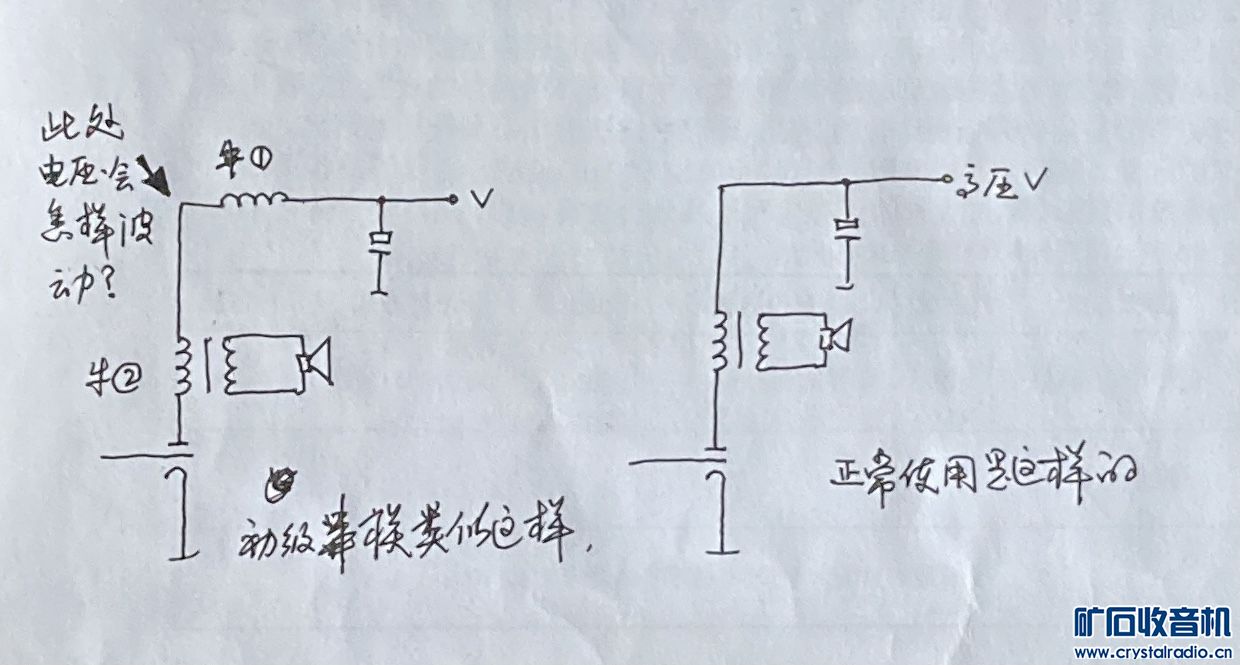 此处
电压会
怎样波
动？
牛①
V
牛②
初级串模类似这样.
高压V
正常使用是这样的
矿石收音机
www.crystalradio.cn